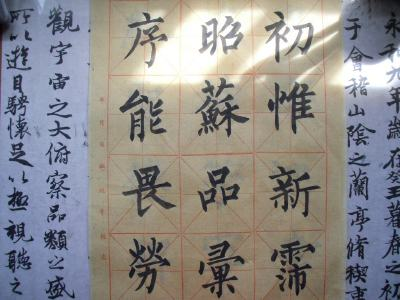 永和九年歲在癸丑暮春之初
于會稽山陰之蘭亭脩稧事
初惟新霈
昭蘇品彙
序能畏勞
觀宇宙之大俯察品類之盛
所以遊目騁懷足以極視聽之